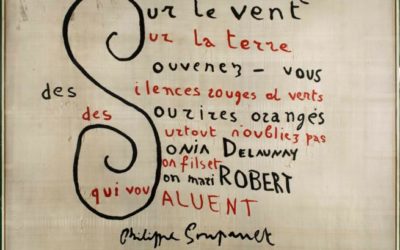 Sur le vent
Sur la terre
Souvenez - vous
des Silences rouges et verts
des Sourires orangés
Surtout n'oubliez pas
Sonia DELAUNAY
Son fils et
Son mari ROBERT
qui vous SALUENT
Philippe Soupault